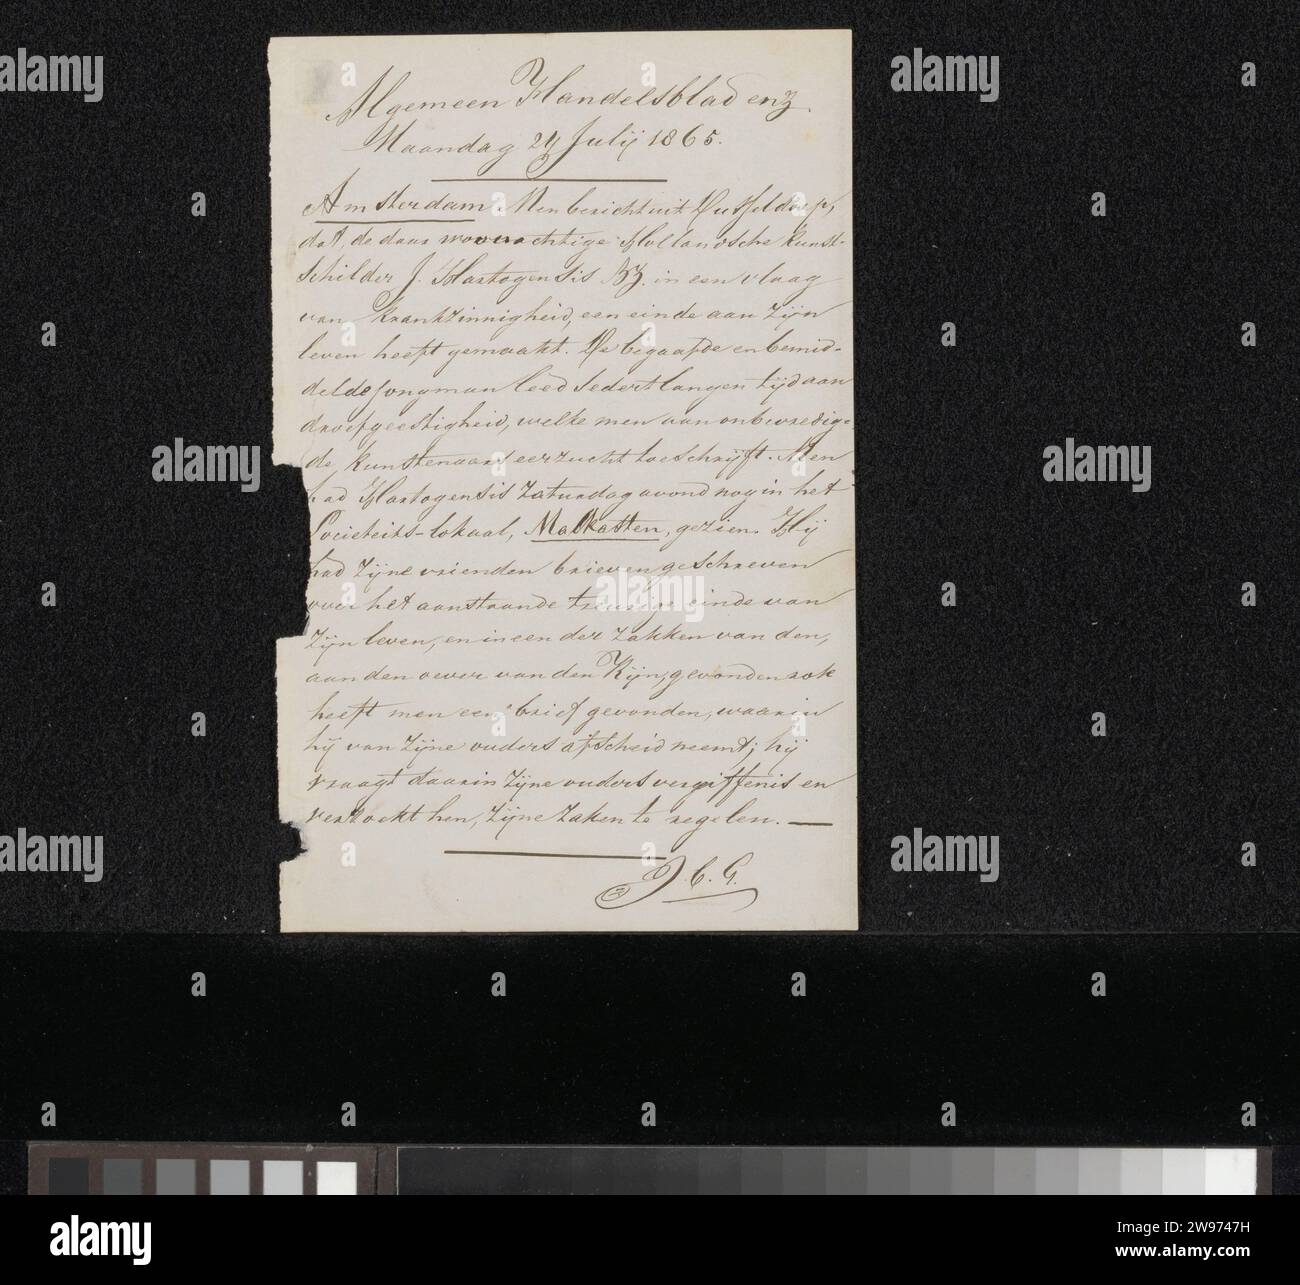 Algemeen Handelsblad enz.
Maandag 24 Julij 1865.
Amsterdam Men bericht uit Dusseldorp,
dat, de daar woonachtige Hollandsche kunst-
schilder J. Hartogensis Bz. in een vlaag
van krankzinnigheid, een einde aan zijn
leven heeft gemaakt. De begaafde en bemid-
delde jongman leed sedert langen tijd aan
droefgeestigheid, welke men aan onbevredig-
de, kunstenaars eerzucht toeschrijft. Men
had Hartogensis Zaturdag avond nog in het
Societeits-lokaal, Malkasten, gezien. Hij
had zijne vrienden brieven geschreven
over het aanstaande treurige einde van
zijn leven, en in een der zakken van den,
aan den oever van den Rijn, gevonden rok
heeft men een brief gevonden, waarin
hij van zijne ouders afscheid neemt; hij
vraagt daarin zijne ouders vergiffenis en
verzoekt hen, zijne zaken te regelen. —
J. C. G.
alamy
alamy
alamy
alamy
alamy
alamy
alamy
alamy
Image ID: 2W9747H
www.alamy.com